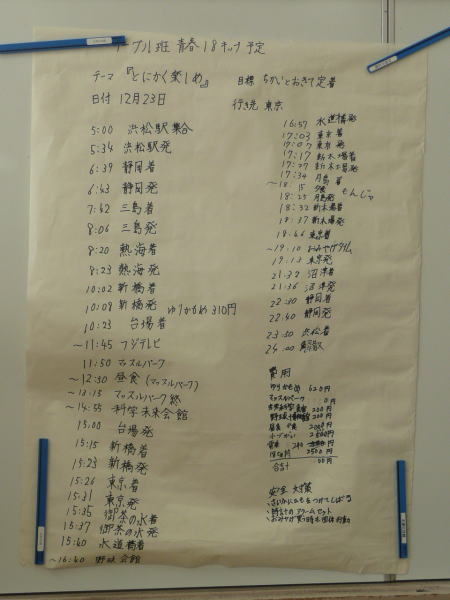 ーブル班 青春18キップ 予定
テーマ 『とにかく楽しめ』
目標 ちかいとおきて定着
日付 12月23日
行き先 東京
5:00 浜松駅集合
5:34 浜松駅発
6:39 静岡着
6:43 静岡発
7:42 三島着
8:06 三島発
8:20 熱海着
8:23 熱海発
10:02 新橋着
10:09 新橋発 ゆりかもめ 310円
10:23 台場着
~11:45 フジテレビ
11:50 マッスルパーク
~12:30 昼食(マッスルパーク)
~13:15 マッスルパーク終
~14:55 科学未来会館
15:00 台場発
15:15 新橋着
15:23 新橋発
15:26 東京着
15:31 東京発
15:35 御茶の水着
15:37 御茶の水発
15:40 水道橋着
~16:40 野球会館
16:57 水道橋発
17:03 東京着
17:07 東京発
17:17 新木場着
17:27 新木場発
17:34 月島着
~18:15 夕食 もんじゃ
18:25 月島発
18:32 新木場着
18:37 新木場発
18:46 東京着
~19:10 おみやげタイム
19:13 東京発
21:32 沼津着
21:36 沼津発
22:30 静岡着
22:40 静岡発
23:50 浜松着
24:00 解散
費用
ゆりかもめ 620円
マッスルパーク 円
200円
200円
昼食 夕食 2000円
円
電車
円
合計 円
安全対策
・時計のアラームセット